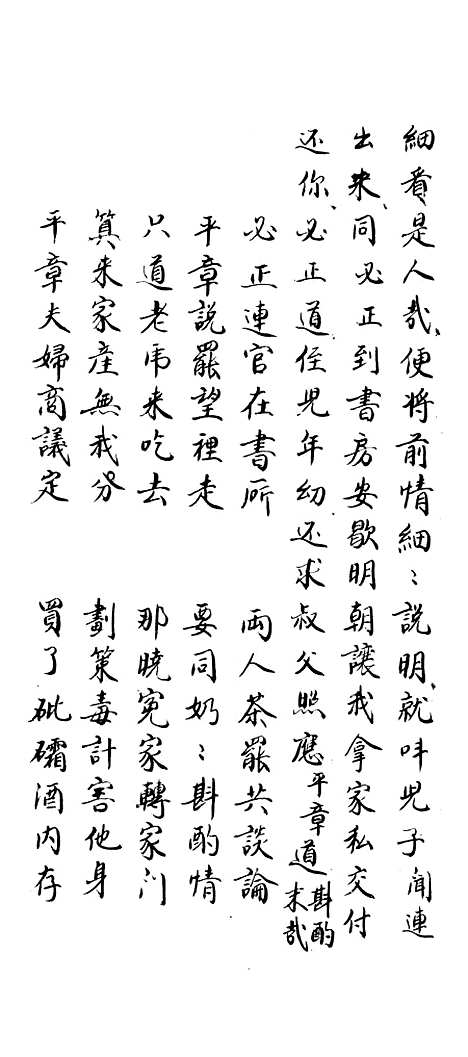 細看是人哉、便將前情細〻說明、就呌児子闻連
出来、同必正到書房安歇明朝讓我拿家私交付
还你、必正道侄児年幼还求叔父照應平章道斟酌来哉
必正連官在書所　両人茶罷共談論
平章說罷望裡走　要同奶〻斟酌情
只道老虎来吃去　那曉冤家轉家门
算来家産無我分　劃策毒計害他身
平章夫婦商議定　買了砒礵酒内存